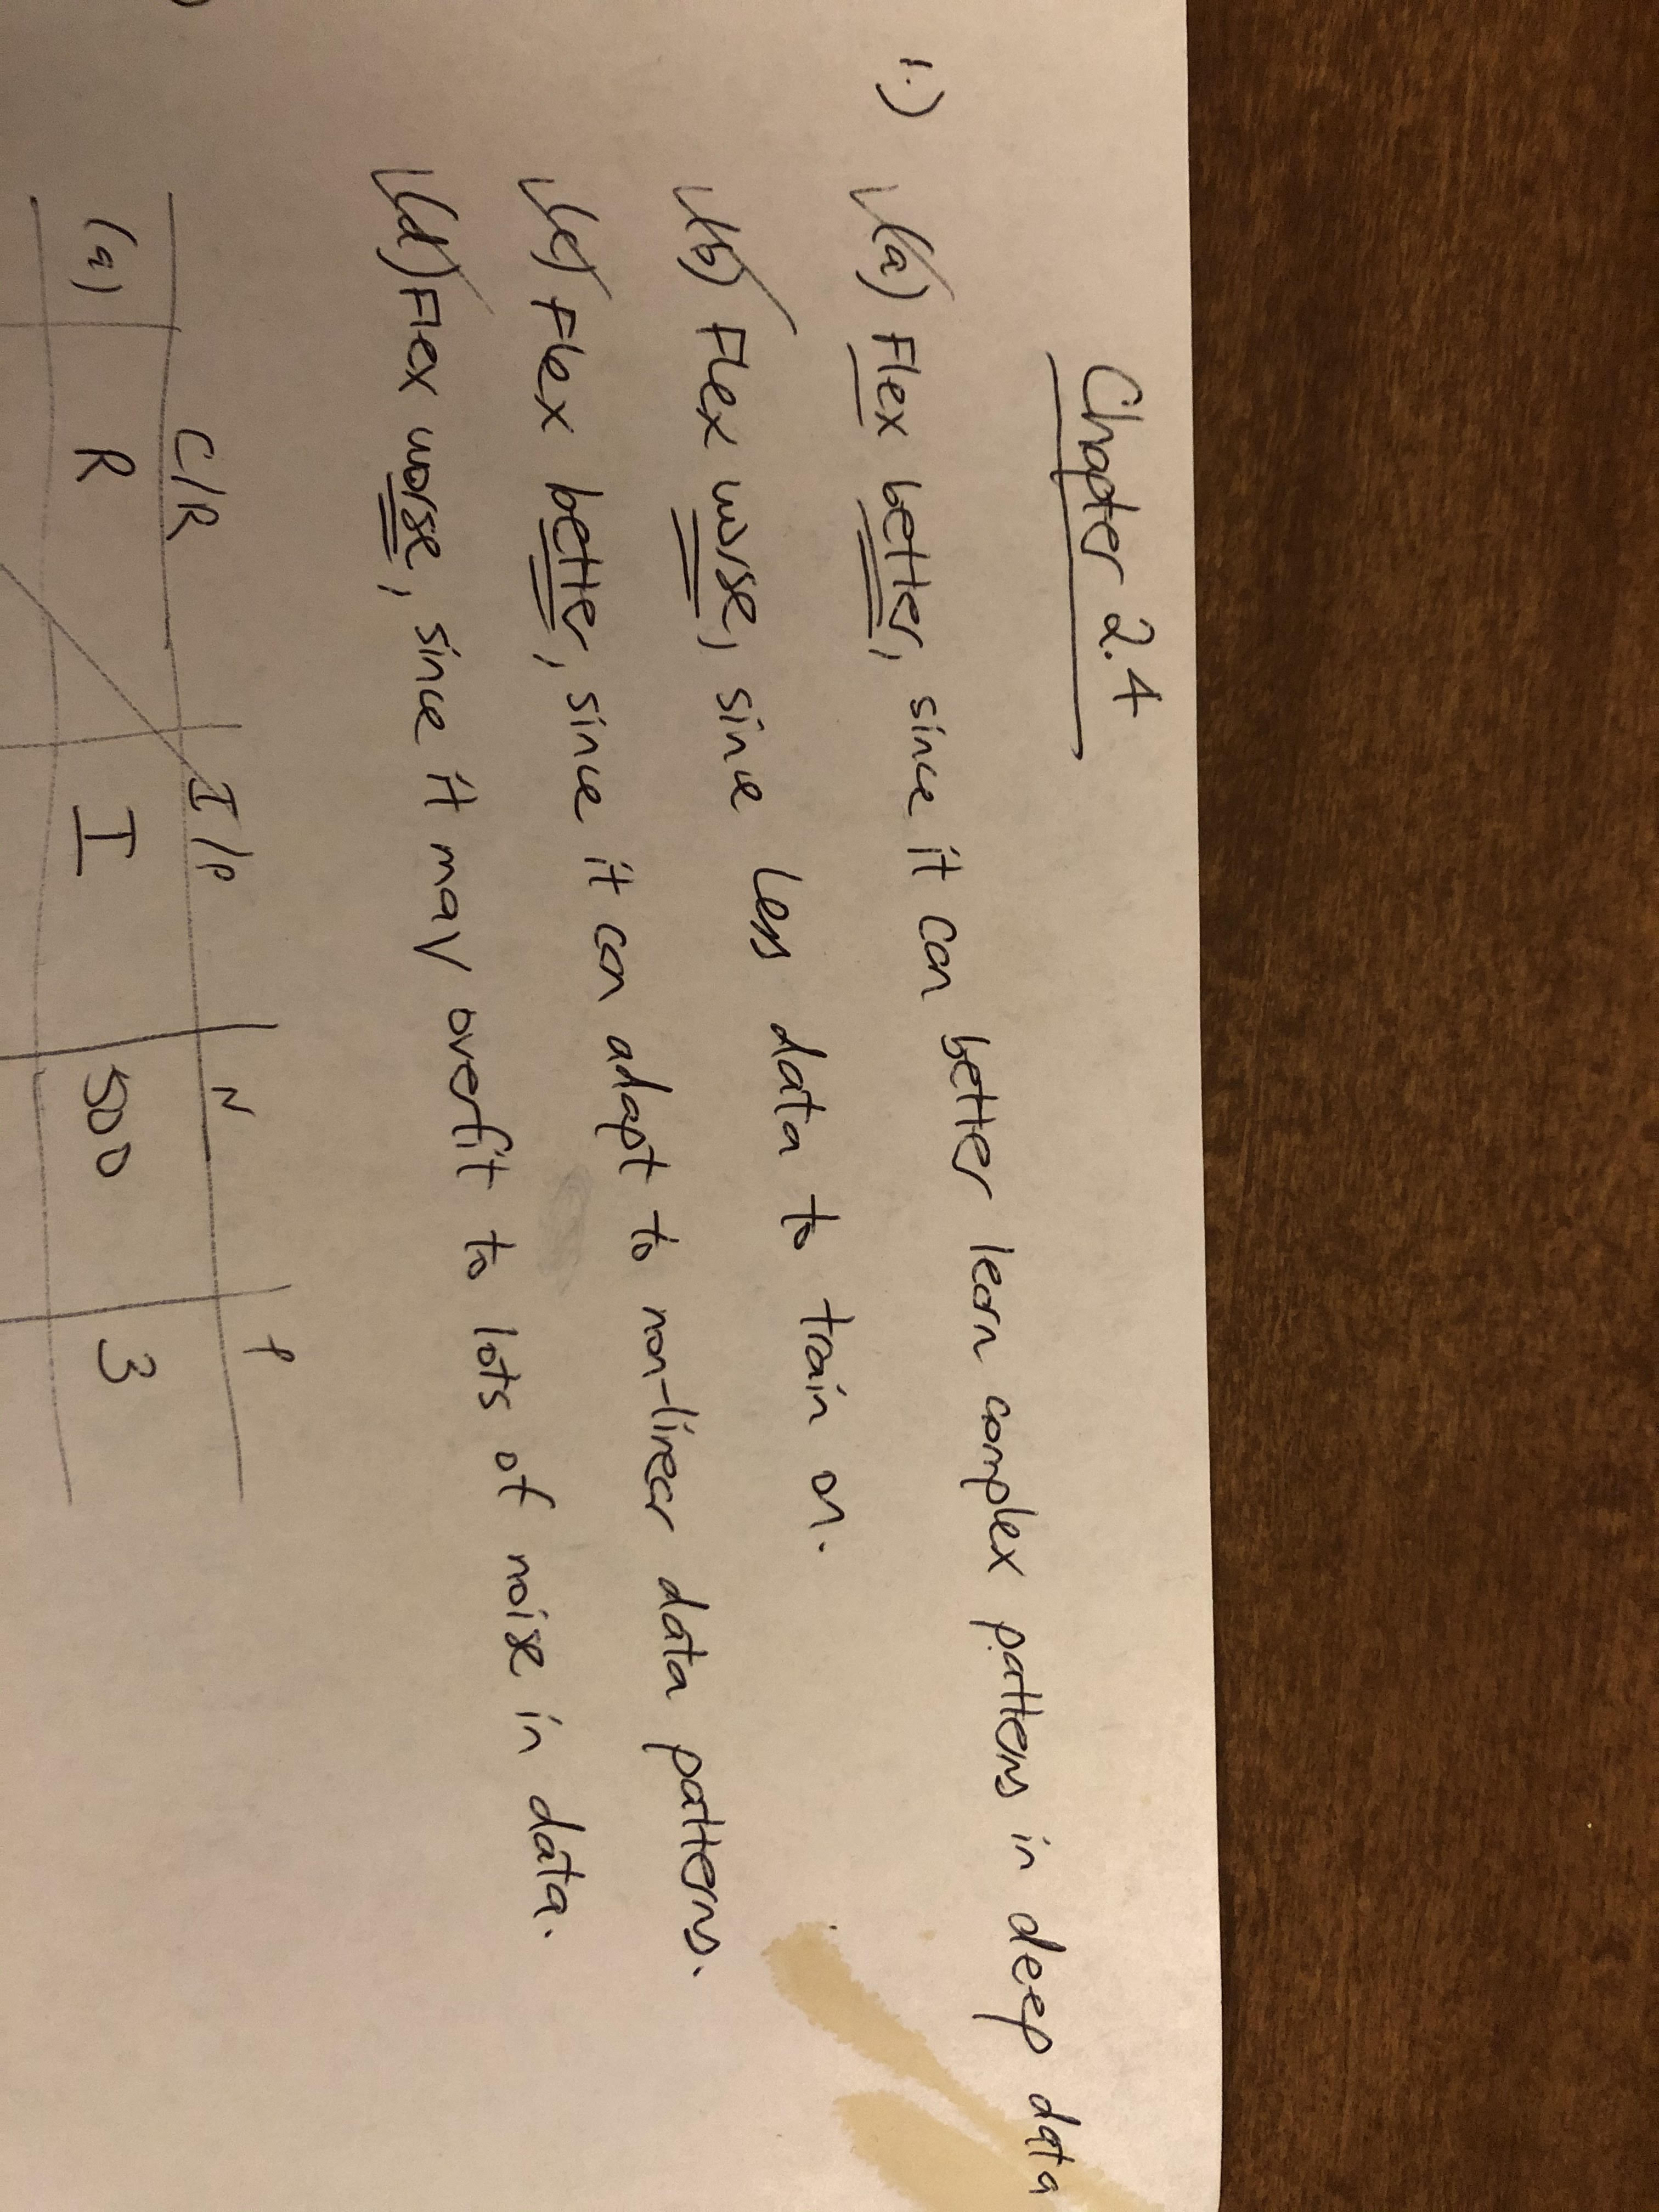 Chapter 2.4
1.) (a) Flex better, since it can better learn complex patterns in deep data
(b) Flex worse, since less data to train on.
(c) Flex better, since it can adapt to non-linear data patterns.
(d) Flex worse, since it may overfit to lots of noise in data.
C/R I/P N P
(a) R I 500 3